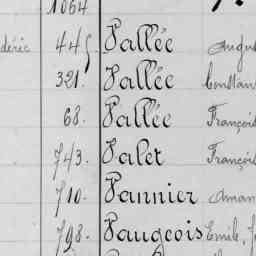 1064
déric 445 Vallée Augus
321. Vallée Constan
68. Vallée François
743. Valet François
710. Vannier Aman
798. Vaugeois Emile, J